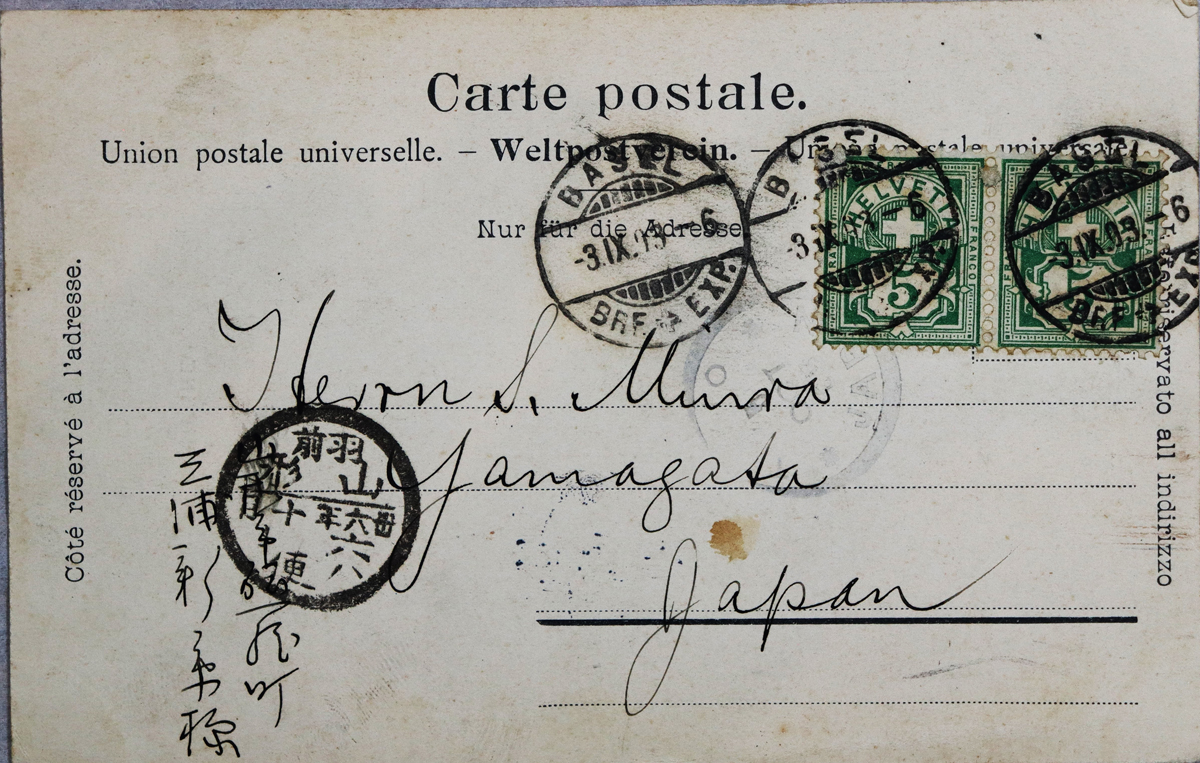 Carte postale.
Union postale universelle. – Weltpostverein. – Unione postale universale.
Nur für die Adresse.
Côté réservé à l'adresse.
riservato all indirizzo
BASEL
-3.IX.03.-6
BRF. EXP.
BASEL
-3.IX. -6
EXP.
BASEL
-3.IX.03.-6
BRF. EXP.
HELVETIA
FRANCO
5
HELVETIA
FRANCO
5
Herrn S. Miura
Yamagata
Japan
羽前
山形
卅六年
十月
六
便
町
三浦新